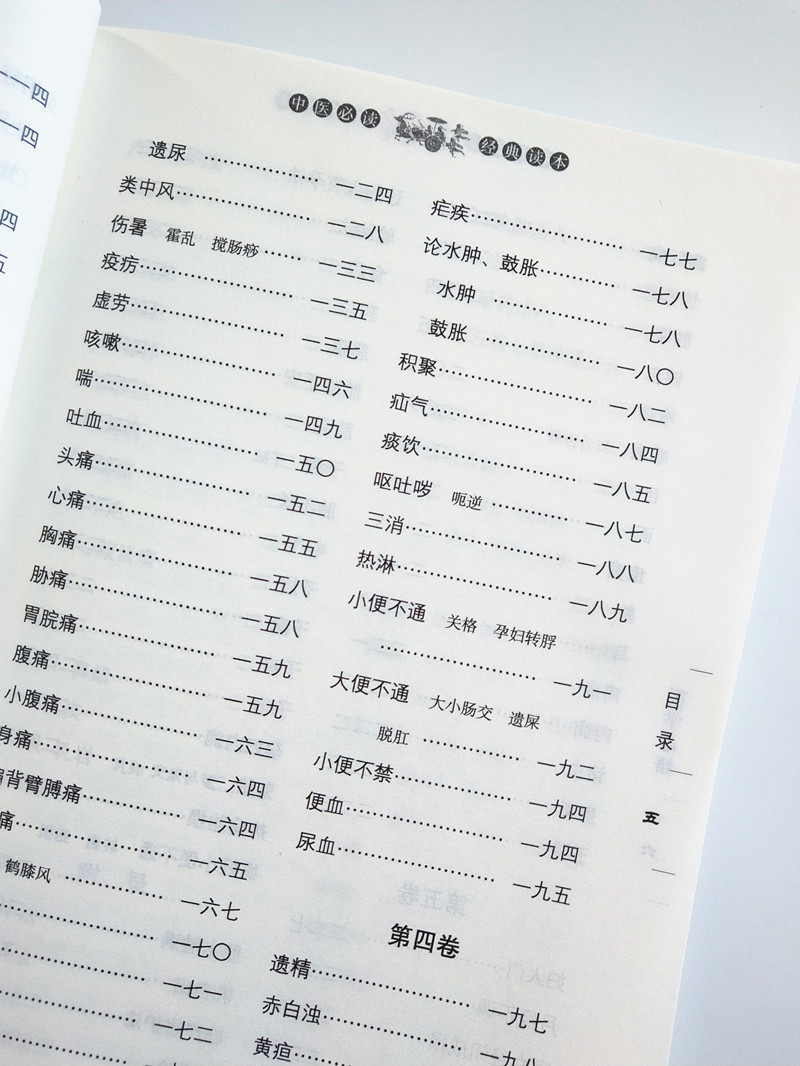 一一四
一一四
四
五
中医必读 经典读本
遗尿 …… 一二四
类中风 …… 一二八
伤暑 霍乱 搅肠痧 …… 一三三
疫疠 …… 一三五
虚劳 …… 一三七
咳嗽 …… 一四六
喘 …… 一四九
吐血 …… 一五〇
头痛 …… 一五二
心痛 …… 一五五
胸痛 …… 一五八
胁痛 …… 一五八
胃脘痛 …… 一五九
腹痛 …… 一五九
小腹痛 …… 一六三
身痛 …… 一六四
背臂膊痛 …… 一六四
痛 …… 一六五
鹤膝风 …… 一六七
…… 一七〇
…… 一七一
…… 一七二
疟疾 …… 一七七
论水肿、鼓胀 …… 一七八
水肿 …… 一七八
鼓胀 …… 一八〇
积聚 …… 一八二
疝气 …… 一八四
痰饮 …… 一八五
呕吐哕 呃逆 …… 一八七
三消 …… 一八八
热淋 …… 一八九
小便不通 关格 孕妇转脬
…… 一九一
大便不通 大小肠交 遗屎
脱肛 …… 一九二
小便不禁 …… 一九四
便血 …… 一九四
尿血 …… 一九五
第四卷
遗精 …… 一九七
赤白浊 …… 一九八
黄疸 ……
目录
五